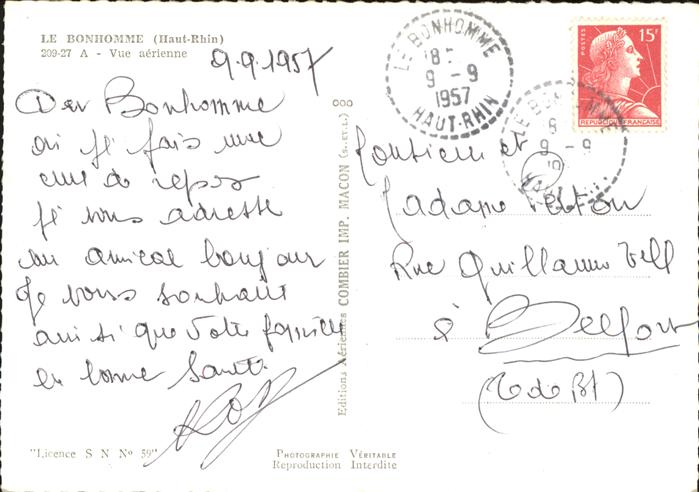 LE BONHOMME (Haut-Rhin)
209-27 A - Vue aérienne
9.9.1957
Der Bonhomme
ou je fais une
cure de repos
je vous adresse
un amical bonjour
Je vous souhait
ainsi que votre famille
en bonne santé
"Licence S N Nº 59"
PHOTOGRAPHIE VÉRITABLE
Reproduction Interdite
Editions Aériennes COMBIER IMP. MACON (S.-ET-L.)
LE BONHOMME
18
9 -9
1957
HAUT-RHIN
POSTES
15F
REPUBLIQUE FRANÇAISE
9 -9
Monsieur et
Madame
Rue Guillaume Tell
à Belfort
(T de Bt)